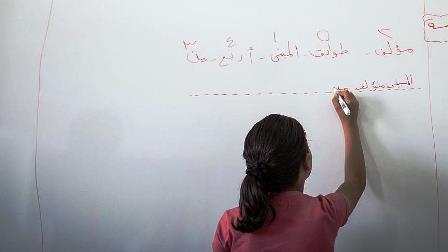 ٢ ٥ ١ ٤ ٣
مؤلف - طوابق - المبنى - أربع - من
المبنى مؤلف